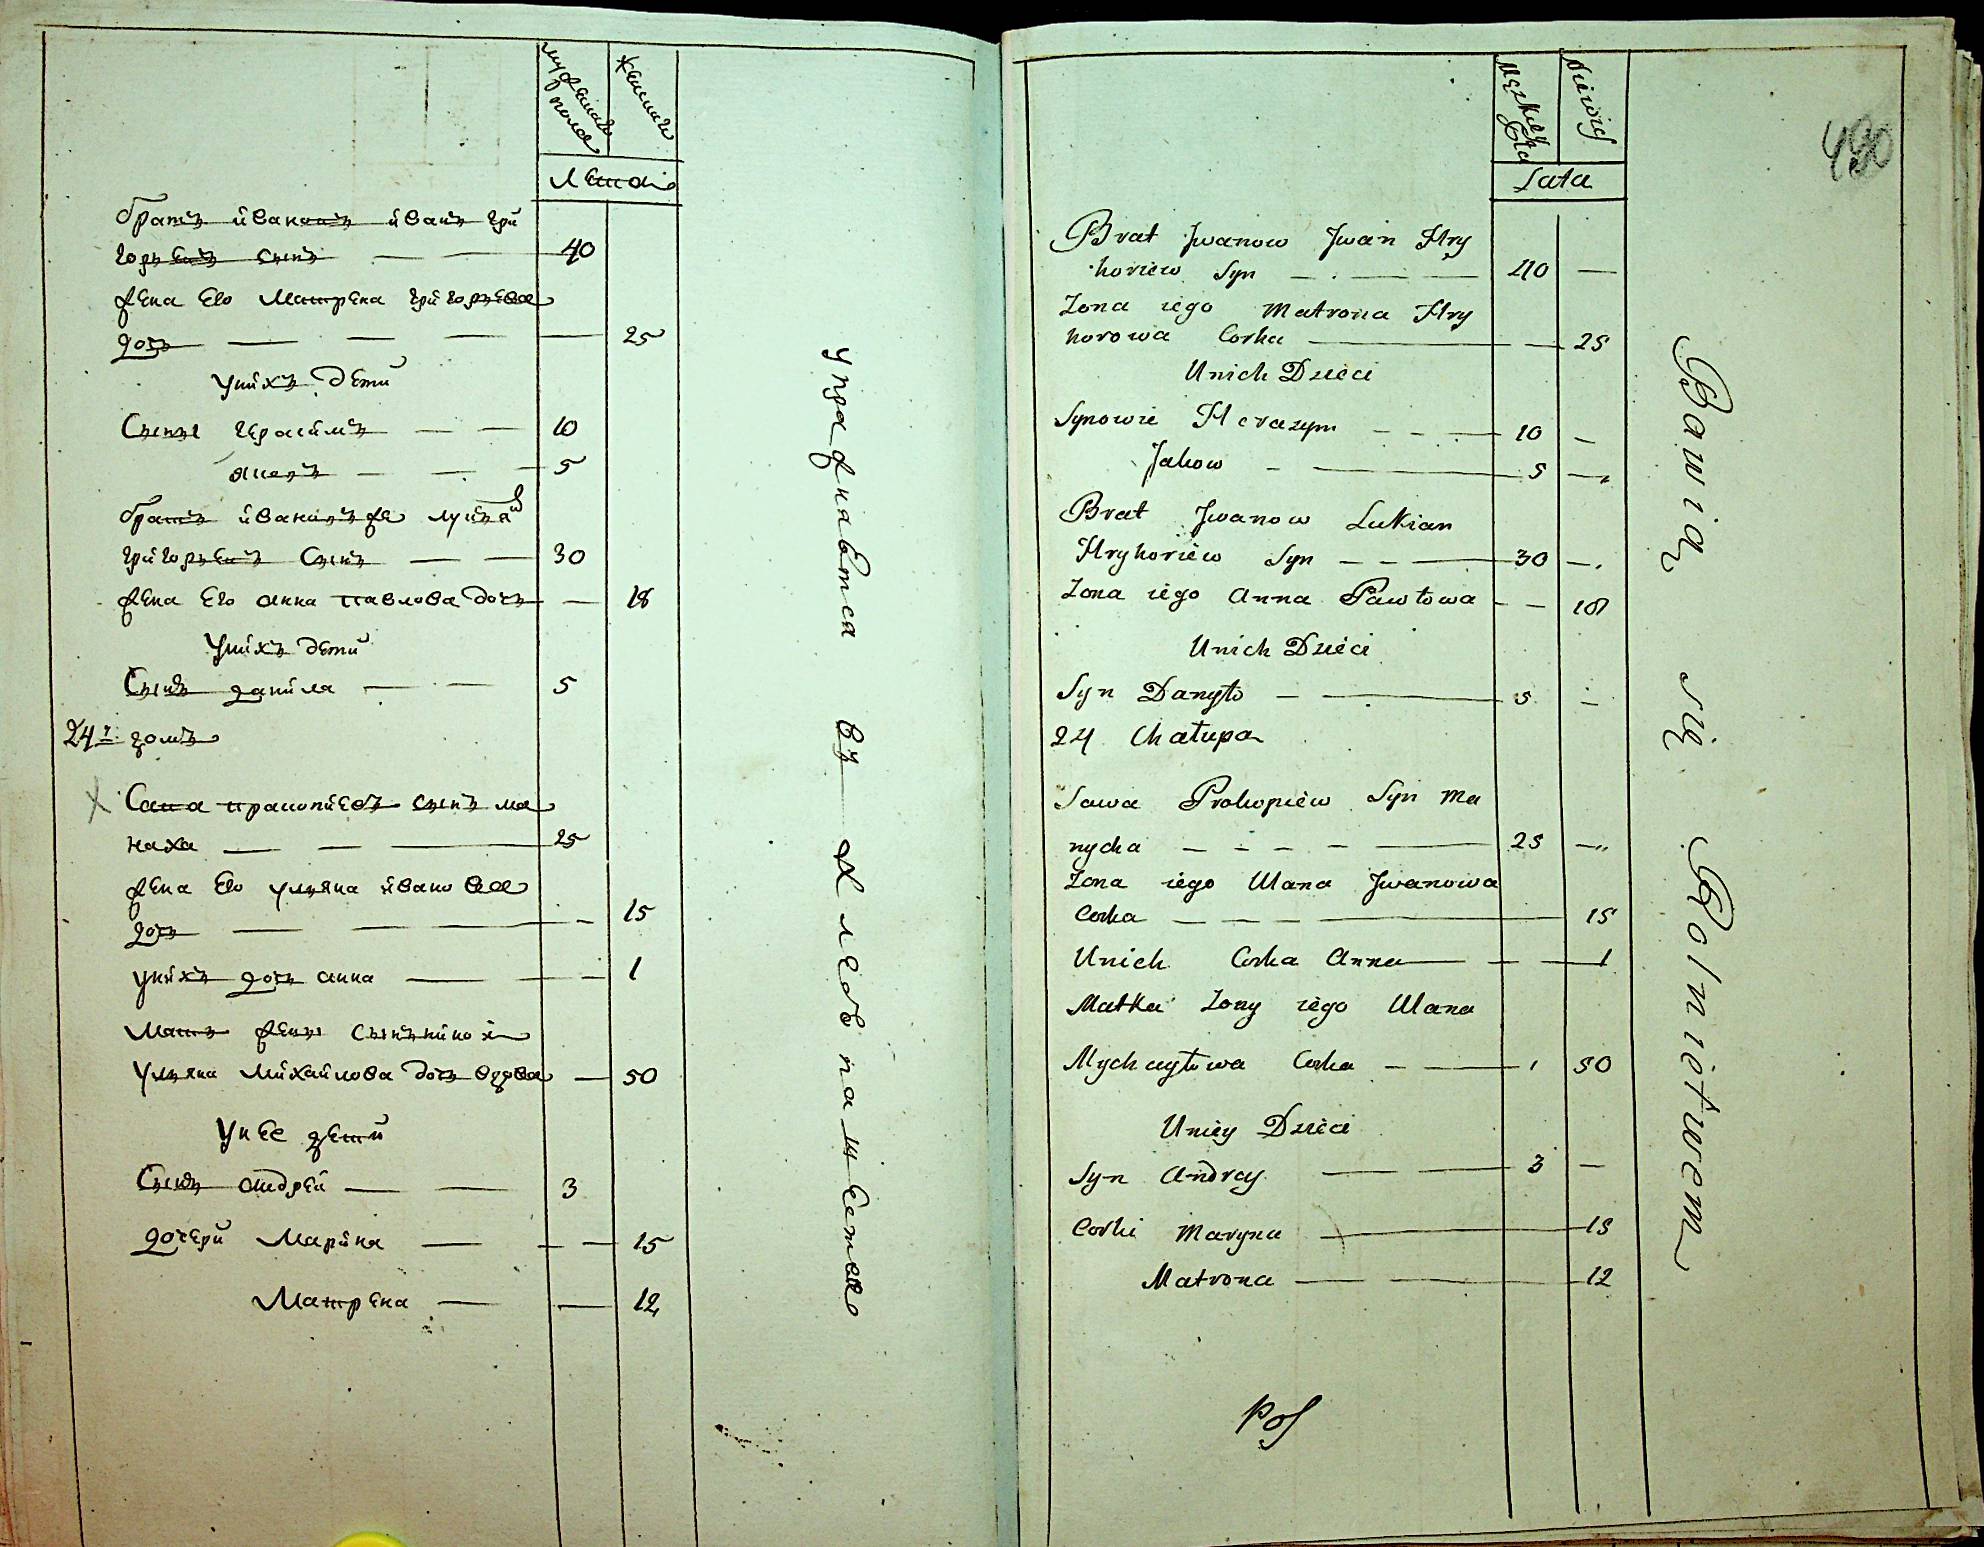 мужеска пола
женска
Лета
братъ ивановъ иванъ гри
горьевъ сынъ — — 40
жена его Матрена григорьева
дочь — — — — 25
у нихъ дети
Сыны герасимъ — — 10
яковъ — — 5
братъ ивановъ же лукъян
григорьевъ Сынъ — — 30
жена его анна павлова дочь — 18
у нихъ дети
Сынъ данила — — 5
24 домъ
Сава пракопиевъ сынъ ма
наха — — 25
жена его ульяна иванова
дочь — — — 15
у нихъ дочь анна — — 1
Мать жены
Ульяна михайлова дочь вдова — 50
у нее дети
Сынъ андрей — — 3
дочери Марина — — — 15
Матрена — — 12
упражнаетса въ хлебопашестве
Męzkiey Płci
Niewiey
Lata
430
Brat Jwanow Jwan Hry
horiew Syn — . — — 40 —
Zona iego Matrona Hry
horowa Corka — — 25
Unich Dzieci
Synowie Herasym – – — 10 –
Jakow - — 5 —
Brat Jwanow Lukian
Hryhoriew Syn – – — 30 –
Zona iego Anna Pawłowa - – 18
Unich Dzieci
Syn Danyło – — 5 –
24 Chałupa
Sawa Prokopiew Syn Ma
nycha – - – - — 25 —
Zona iego Ulana Jwanowa
Corka – – – — 15
Unich Corka Anna — – — 1
Matka Zony iego Ulana
Mychayłowa Corka – – — 50
Uniey Dzieci
Syn Andrey — — 3 —
Corki Maryna — 15
Matrona — — 12
Bawią się Rolnictwem
Pos